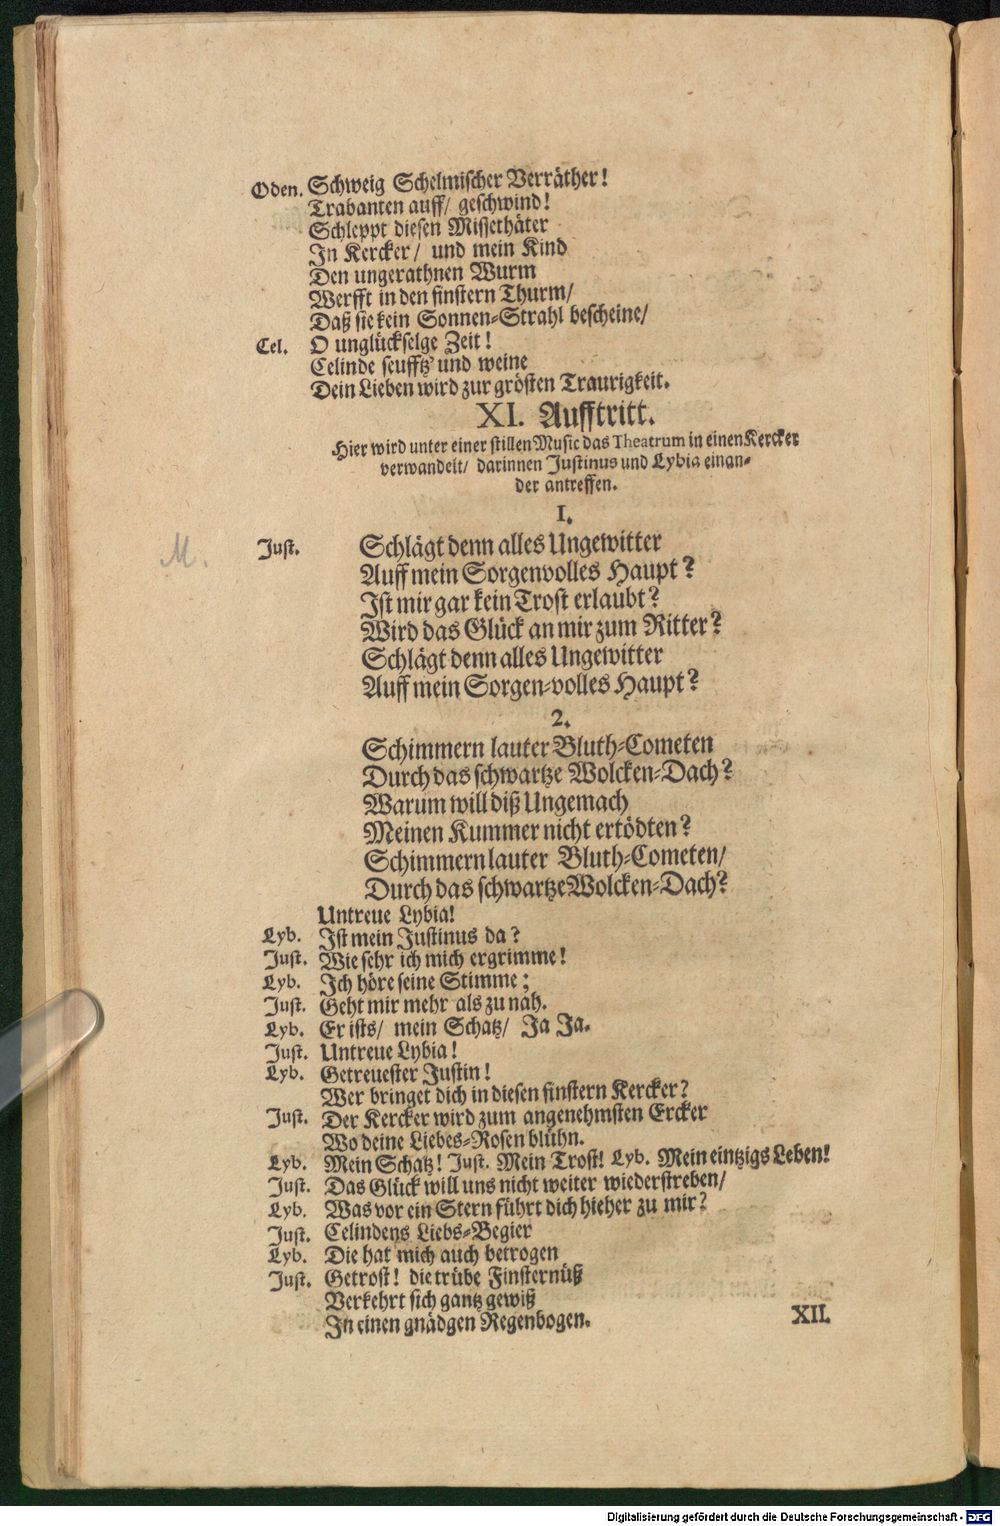 Oden. Schweig Schelmischer Verräther!
Trabanten auff/ geschwind!
Schleppt diesen Missethäter
In Kercker/ und mein Kind
Den ungerathnen Wurm
Werfft in den finstern Thurm/
Daß sie kein Sonnen-Strahl bescheine/
Cel. O unglückselge Zeit!
Celinde seufftz' und weine
Dein Lieben wird zur grösten Traurigkeit.
XI. Aufftritt.
Hier wird unter einer stillen Music das Theatrum in einen Kercker
verwandelt/ darinnen Justinus und Lybia einan-
der antreffen.
1.
M.
Just. Schlägt denn alles Ungewitter
Auff mein Sorgenvolles Haupt?
Ist mir gar kein Trost erlaubt?
Wird das Glück an mir zum Ritter?
Schlägt denn alles Ungewitter
Auff mein Sorgen-volles Haupt?
2.
Schimmern lauter Bluth-Cometen
Durch das schwartze Wolcken-Dach?
Warum will diß Ungemach
Meinen Kummer nicht ertödten?
Schimmern lauter Bluth-Cometen/
Durch das schwartze Wolcken-Dach?
Untreue Lybia!
Lyb. Ist mein Justinus da?
Just. Wie sehr ich mich ergrimme!
Lyb. Ich höre seine Stimme;
Just. Geht mir mehr als zu nah.
Lyb. Er ists/ mein Schatz/ Ja Ja.
Just. Untreue Lybia!
Lyb. Getreuester Justin!
Wer bringet dich in diesen finstern Kercker?
Just. Der Kercker wird zum angenehmsten Ercker
Wo deine Liebes-Rosen blühn.
Lyb. Mein Schatz! Just. Mein Trost! Lyb. Mein eintzigs Leben!
Just. Das Glück will uns nicht weiter wiederstreben/
Lyb. Was vor ein Stern führt dich hieher zu mir?
Just. Celindens Liebs-Begier
Lyb. Die hat mich auch betrogen
Just. Getrost! die trübe Finsternüß
Verkehrt sich gantz gewiß
In einen gnädgen Regenbogen.
XII.
Digitalisierung gefördert durch die Deutsche Forschungsgemeinschaft - DFG